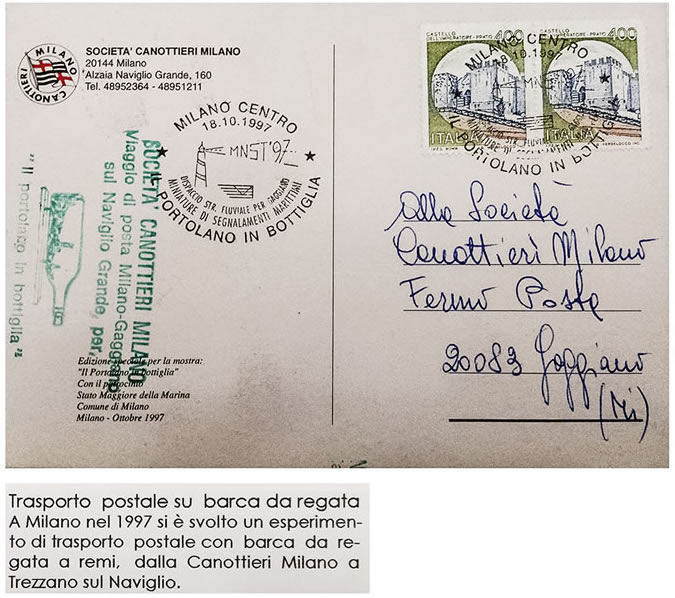 MILANO
CANOTTIERI
SOCIETA' CANOTTIERI MILANO
20144 Milano
Alzaia Naviglio Grande, 160
Tel. 48952364 - 48951211
MILANO CENTRO
18.10.1997
MNST'97
DISPACCIO STR. FLUVIALE PER GAGGIANO
MINIATURE DI SEGNALAMENTI MARITTIMI
"IL PORTOLANO IN BOTTIGLIA"
SOCIETA' CANOTTIERI MILANO
Viaggio di posta Milano-Gaggiano
sul Naviglio Grande, per,
"Il portolano in bottiglia"
Edizione speciale per la mostra:
"Il Portolano in bottiglia"
Con il patrocinio
Stato Maggiore della Marina
Comune di Milano
Milano - Ottobre 1997
CASTELLO DELL'IMPERATORE - PRATO 400
ITALIA
CASTELLO DELL'IMPERATORE - PRATO 400
ITALIA
MILANO CENTRO
18.10.1997
MNST'97
IL PORTOLANO IN BOTTIGLIA
Alla Società
Canottieri Milano
Fermo Posta
20083 Gaggiano
(Mi)
Trasporto postale su barca da regata
A Milano nel 1997 si è svolto un esperimen-
to di trasporto postale con barca da re-
gata a remi, dalla Canottieri Milano a
Trezzano sul Naviglio.